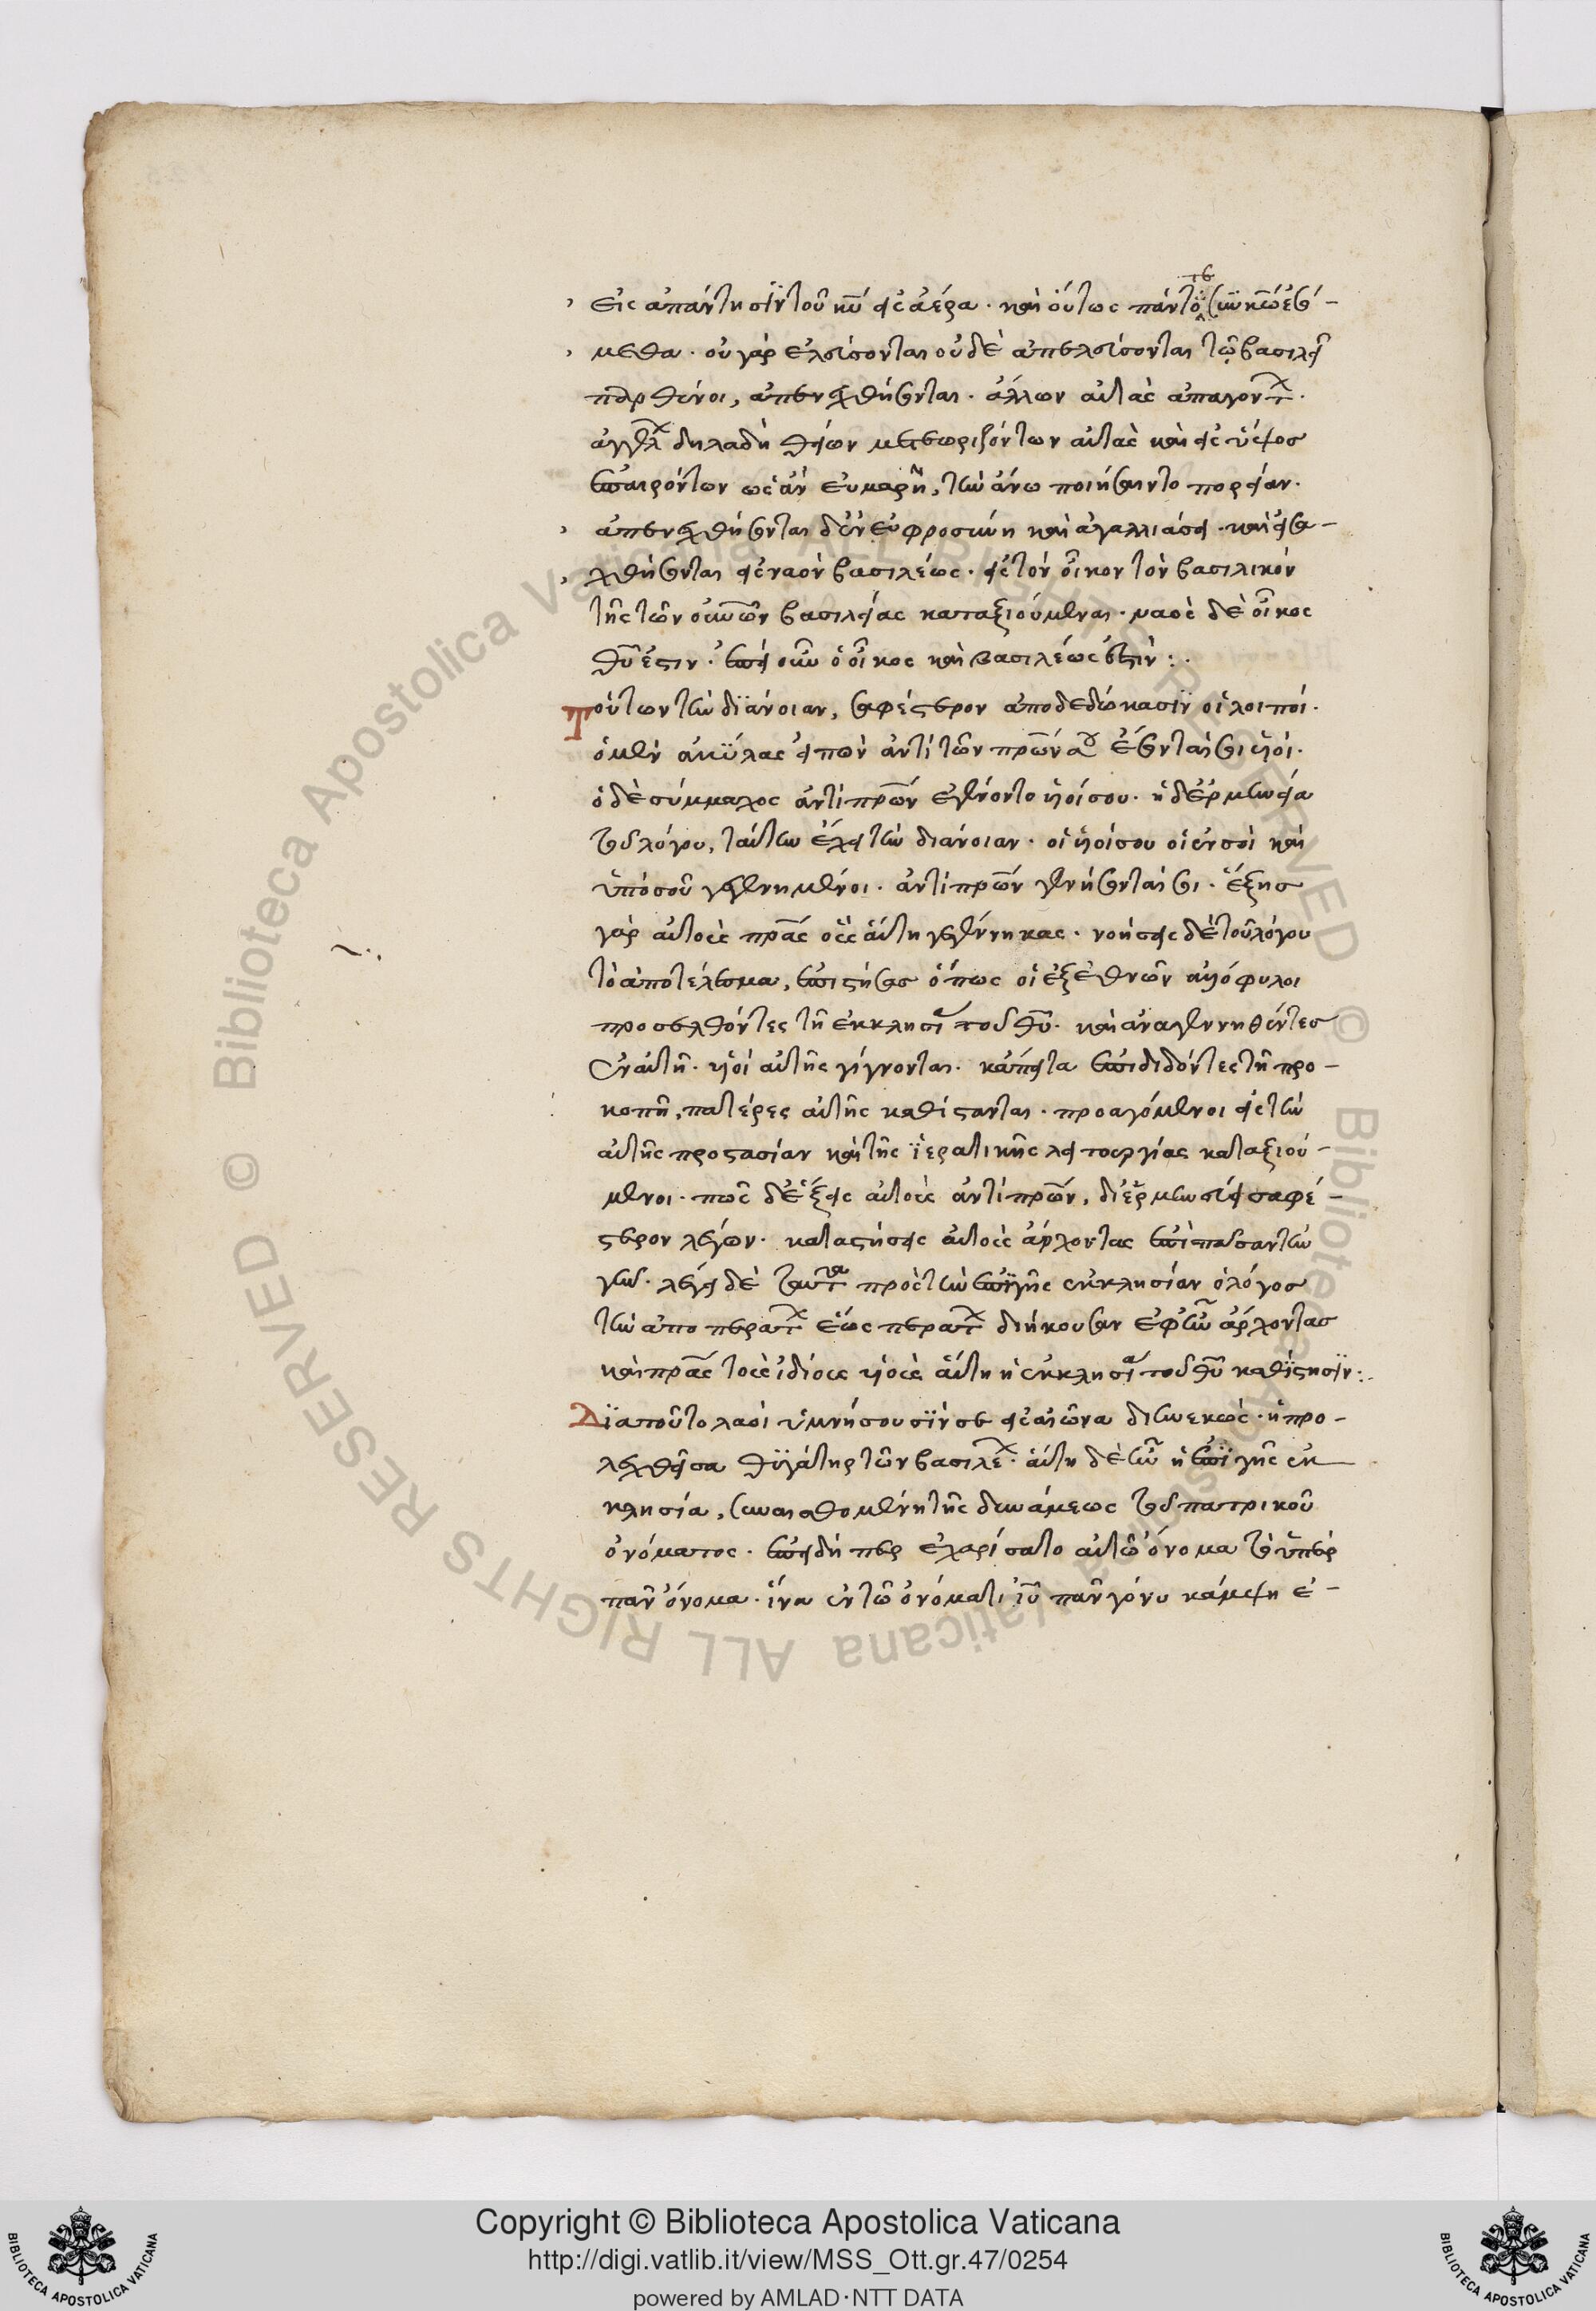 εἰς ἀπάντησϊν τοῦ κ̅υ̅ εἰς ἀέρα· καὶ οὕτως πάντοτε σὺν κ̅ω̅ ἐσό-
μεθα· οὐ γὰρ ἐλεύσονται οὐδὲ ἀπελεύσονται τῷ βασιλεῖ
παρθένοι, ἀπενεχθήσονται· ἄλλων αὐτὰς ἀπαγόντων·
ἀγγέλων δηλαδὴ θείων μετεωριζόντων αὐτὰς καὶ εἰς ὕψος
ἐπαιρόντων ὡς ἂν εὐμαρῆ, τὴν ἄνω ποιήσαιντο πορείαν·
ἀπενεχθήσονται δ' ἐν εὐφροσύνη καὶ ἀγαλλιάσει· καὶ εἰσα-
χθήσονται εἰς ναὸν βασιλέως· εἰς τὸν οἶκον τὸν βασιλικὸν
τῆς τῶν ο̅υ̅ν̅ω̅ν̅ βασιλείας καταξιούμεναι· ναὸς δὲ οἶκος
θ̅υ̅ ἐστιν· ἐπεὶ οὖν ὁ οἶκος καὶ βασιλέως ἐστίν:·
Τούτων τὴν διάνοιαν, σαφέστερον ἀποδεδώκασϊν οἱ λοιποί·
ὁ μὲν ἀκύλας εἰπὼν ἀντὶ τῶν πρων σου ἔσονταί σοι υἱοί·
ὁ δὲ σύμμαχος ἀντὶ πρων ἐγένοντο υἱοί σου· ἡ δ' ἑρμηνεία
τοῦ λόγου, ταύτην ἔχει τὴν διάνοιαν· οἱ υἱοί σου οἱ ἐν σοὶ καὶ
ὑπὸ σοῦ γεγεννημένοι· ἀντὶ πρων γενήσονταί σοι· ἕξεις
γὰρ αὐτοὺς πρας οὓς αὕτη γεγέννηκας· νοήσεις δὲ τοῦ λόγου
τὸ ἀποτέλεσμα, ἐπιστήσας ὅπως οἱ ἐξ ἐθνῶν ἀλλόφυλοι
προσελθόντες τῆ ἐκκλησία τοῦ θ̅υ̅· καὶ ἀναγεννηθέντες
ἐν αὐτῆ· υἱοὶ αὐτῆς γίγνονται· κἄπειτα ἐπιδιδόντες τῆ προ-
κοπῆ, πατέρες αὐτῆς καθίστανται· προαγόμενοι εἰς τὴν
αὐτῆς προστασίαν καὶ τῆς ἱερατικῆς λειτουργίας καταξιού-
μενοι· πῶς δὲ ἕξεις αὐτοὺς ἀντὶ πρων, διερμηνεύσει σαφέ-
στερον λέγων· καταστήσεις αὐτοὺς ἄρχοντας ἐπὶ πᾶσαν τὴν
γῆν· λέγει δὲ ταῦτα πρὸς τὴν ἐπὶ γῆς ἐκκλησίαν ὁ λόγος
τὴν ἀπο περάτων ἕως περάτων διήκουσαν ἐφ' ὧν ἄρχοντας
καὶ πρας τοὺς ἰδίους υἱοὺς αὕτη ἡ ἐκκλησία τοῦ θ̅υ̅ καθίστησϊν:·
Δϊατοῦτο λαοὶ ὑμνήσουσϊν σε εἰς αἰῶνα διηνεκῶς· ἡ προ-
λεχθεῖσα θυγάτηρ τῶν βασιλέων· αὕτη δὲ ἦν ἡ ἐπὶ γῆς ἐκ
κλησία, συναισθομένη τῆς δυνάμεως τοῦ πατρικοῦ
ὀνόματος· ἐπειδήπερ ἐχαρίσατο αὐτῶ ὄνομα τὸ ὑπὲρ
πᾶν ὄνομα· ἵνα ἐν τῶ ὀνόματι ἰ̅υ̅ πᾶν γόνυ κάμψη ἐ-
Copyright © Biblioteca Apostolica Vaticana
http://digi.vatlib.it/view/MSS_Ott.gr.47/0254
powered by AMLAD·NTT DATA